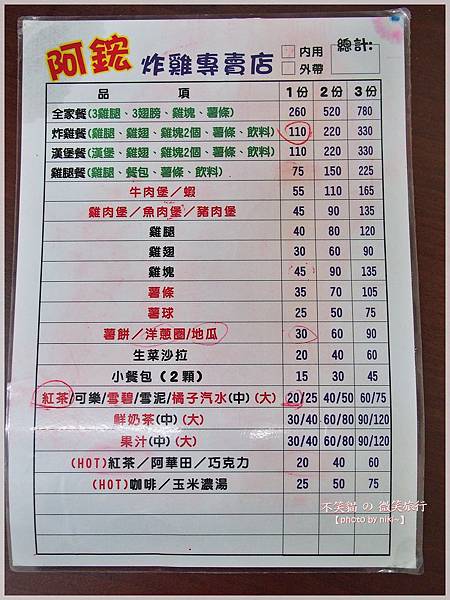 阿鋐 炸雞專賣店 內用 總計:
外帶
品 項 1份 2份 3份
全家餐(3雞腿、3翅膀、雞塊、薯條) 260 520 780
炸雞餐(雞腿、雞翅、雞塊2個、薯條、飲料) 110 220 330
漢堡餐(漢堡、雞翅、雞塊2個、薯條、飲料) 110 220 330
雞腿餐(雞腿、餐包、薯條、飲料) 75 150 225
牛肉堡／蝦 55 110 165
雞肉堡／魚肉堡／豬肉堡 45 90 135
雞腿 40 80 120
雞翅 30 60 90
雞塊 45 90 135
薯條 35 70 105
薯球 25 50 75
薯餅／洋蔥圈/地瓜 30 60 90
生菜沙拉 20 40 60
小餐包（2顆） 15 30 45
紅茶/可樂/雪碧/雪泥/橘子汽水(中)(大) 20/25 40/50 60/75
鮮奶茶(中)(大) 30/40 60/80 90/120
果汁(中)(大) 30/40 60/80 90/120
(HOT)紅茶／阿華田／巧克力 20 40 60
(HOT)咖啡／玉米濃湯 25 50 75
不笑貓 の 微笑旅行
【photo by niki~】